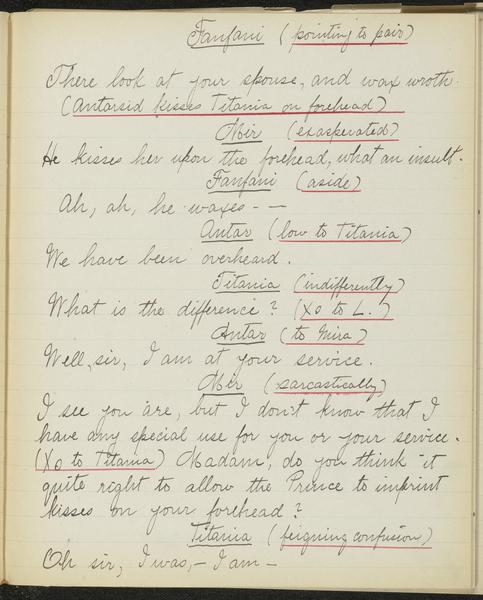 Fanfani (pointing to pair)
There look at your spouse, and wax wroth.
(Antarsid kisses Titania on forehead)
Mir (exasperated)
He kisses her upon the forehead, what an insult.
Fanfani (aside)
Ah, ah, he waxes - -
Antar (low to Titania)
We have been overheard.
Titania (indifferently)
What is the difference? (Xo to L.)
Antar (to Mira)
Well, sir, I am at your service.
Mir (sarcastically)
I see you are, but I don't know that I
have any special use for you or your service.
(Xo to Titania) Madam, do you think it
quite right to allow the Prince to imprint
kisses on your forehead?
Titania (feigning confusion)
Oh sir, I was, - I am -